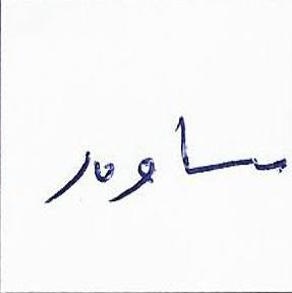 ساومر